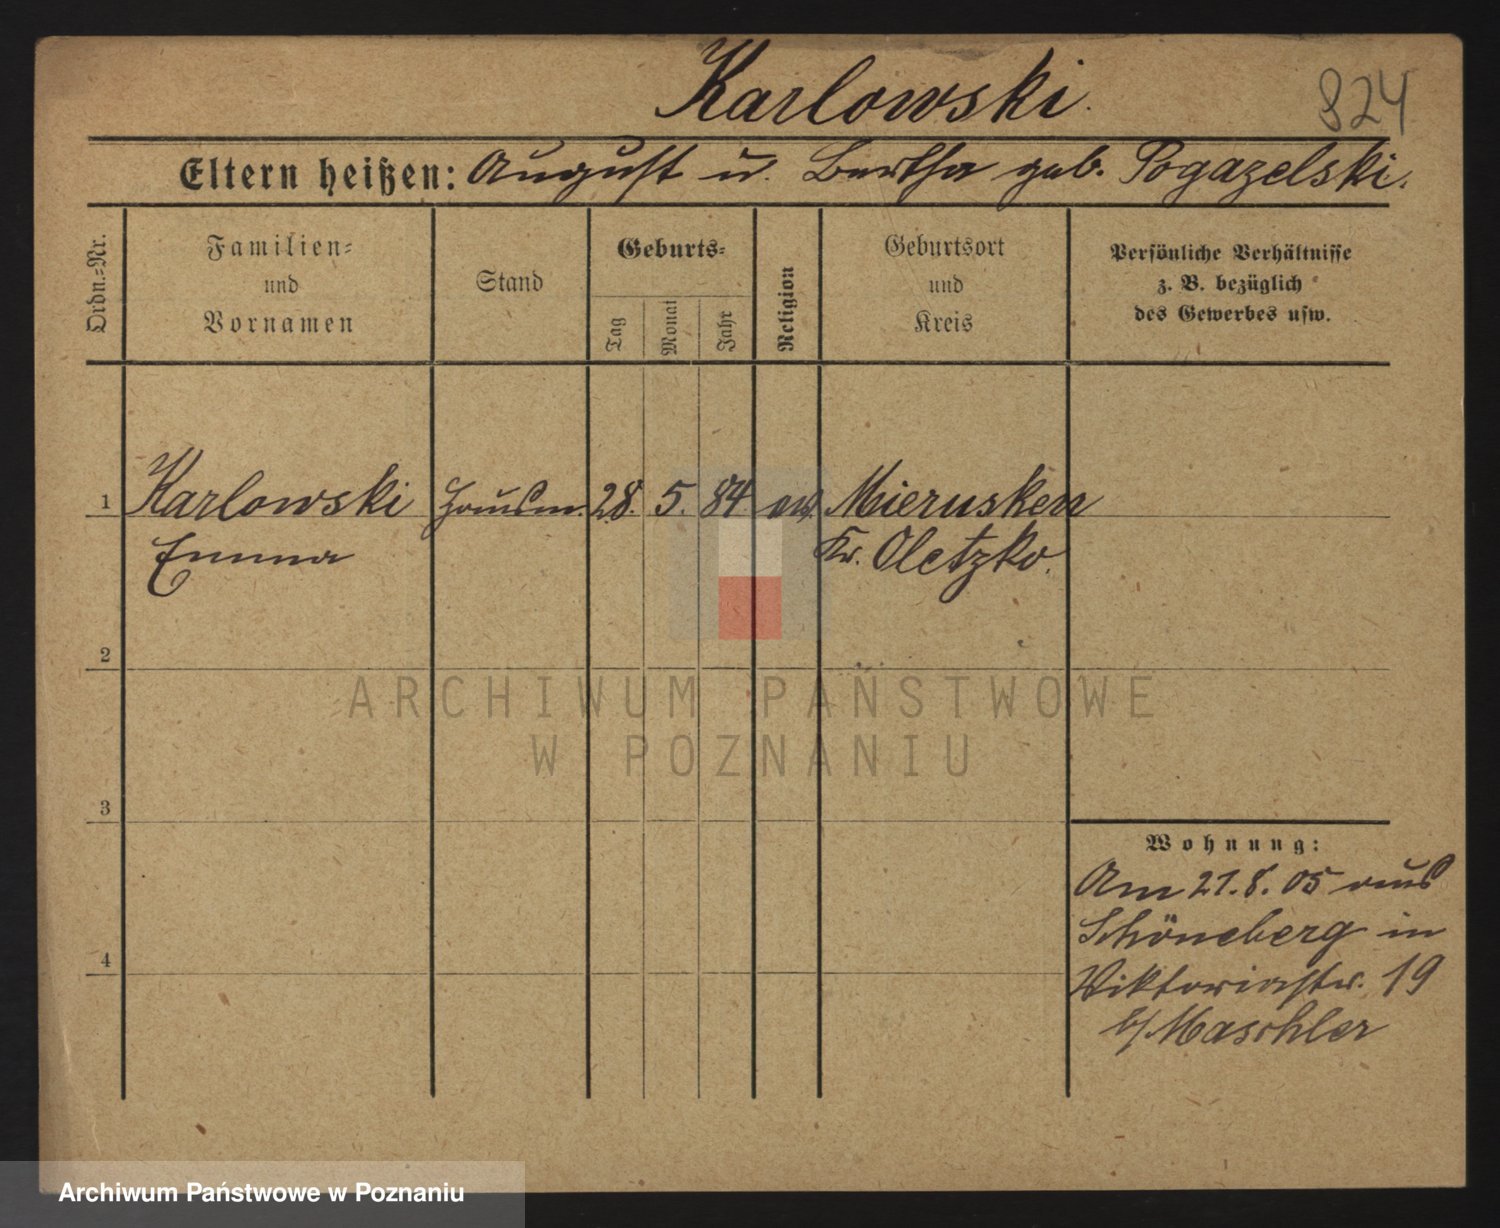 Karlowski.
824
Eltern heißen: August u. Bertha geb. Pogazelski.
Ordn.=Nr.
Familien=
und
Vornamen
Stand
Geburts=
Tag
Monat
Jahr
Religion
Geburtsort
und
Kreis
Persönliche Verhältnisse
z. B. bezüglich
des Gewerbes usw.
1 Karlowski Hausm. 28. 5. 84 ev. Mierusken
Emma Kr. Oletzko.
2
ARCHIWUM PAŃSTWOWE
W POZNANIU
3
Wohnung:
Am 21.8.05 aus
Schöneberg in
4
Viktoriastr. 19
b/ Maschler
Archiwum Państwowe w Poznaniu